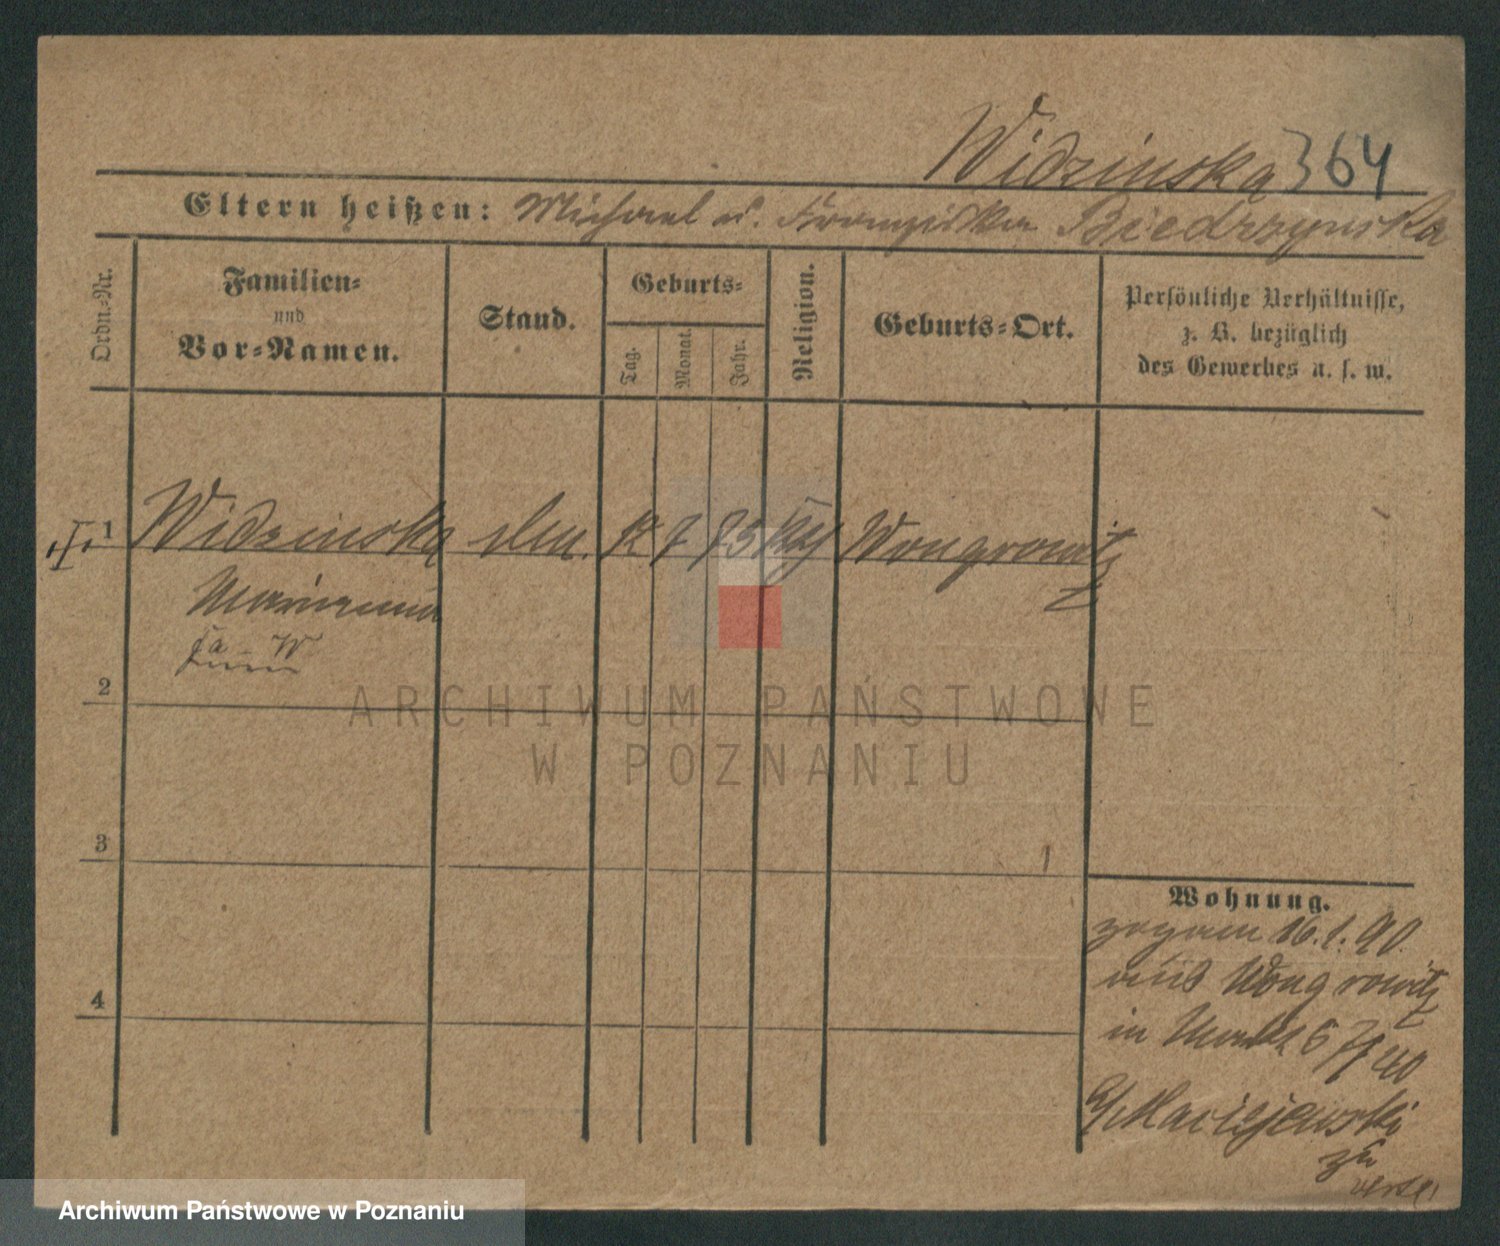 Widzinska 364
Eltern heißen: Michael u. Franziska Biedrzynska
Ordn.-Nr.
Familien-
und
Vor-Namen.
Stand.
Geburts-
Tag.
Monat.
Jahr.
Religion.
Geburts-Ort.
Persönliche Verhältnisse,
z. B. bezüglich
des Gewerbes u. s. w.
1 Widzinska 12 7 73 Wongrowitz
Marianna
2
3
4
Wohnung.
zog am 16.1.90.
aus Wongrowitz
in
Maciejewski
ARCHIWUM PAŃSTWOWE
W POZNANIU
Archiwum Państwowe w Poznaniu